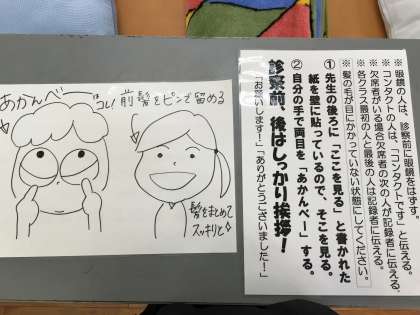 あかんべー
コレ!前髪をピンで留める
髪をまとめて
スッキリと
※眼鏡の人は、診察前に眼鏡をはずす。
※コンタクトの人は、「コンタクトです」と伝える。
※欠席者がいる場合欠席者の次の人が記録者に伝える。
※各クラス最初の人と最後の人は記録者に伝える。
※髪の毛が目にかかっていない状態にしてください。
①先生の後ろに「ここを見る」と書かれた
紙を壁に貼っているので、そこを見る。
②自分の手で両目を「あかんべー」する。
診察前、後はしっかり挨拶!
「お願いします!」「ありがとうございました!」